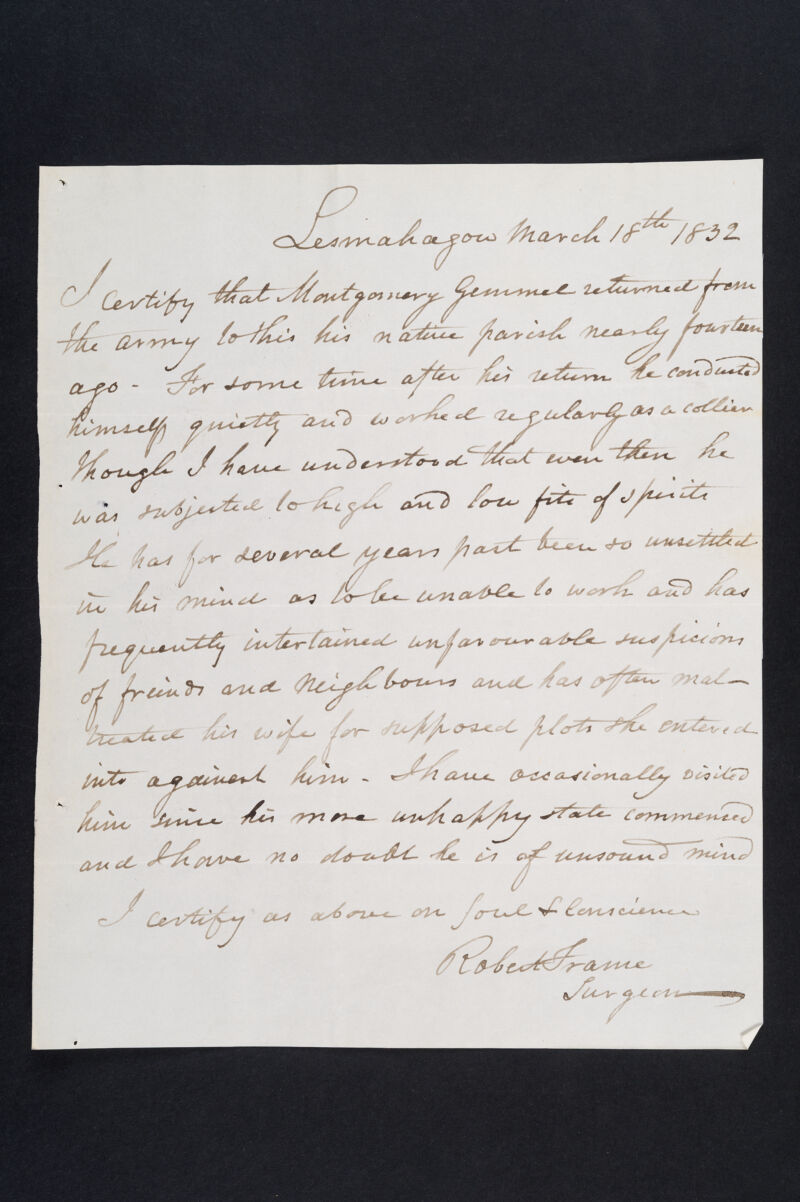 Lesmahagow March 18th 1832
I certify that Montgomery Gemmel returned from
the army to this his native parish nearly fourteen
ago - For some time after his return he conducted
himself quietly and worked regularly as a collier
though I have understood that even then he
was subjected to high and low fits of spirits
He has for several years past been so unsettled
in his mind as to be unable to work and has
frequently intertained unfavourable suspicions
of freinds and Neighbours and has often mal-
treated his wife for supposed plots she entered
into against him - I have occasionally visited
him since his more unhappy state commenced
and I have no doubt he is of unsound mind
I certify as above on Soul & Conscience
Robert Frame
Surgeon